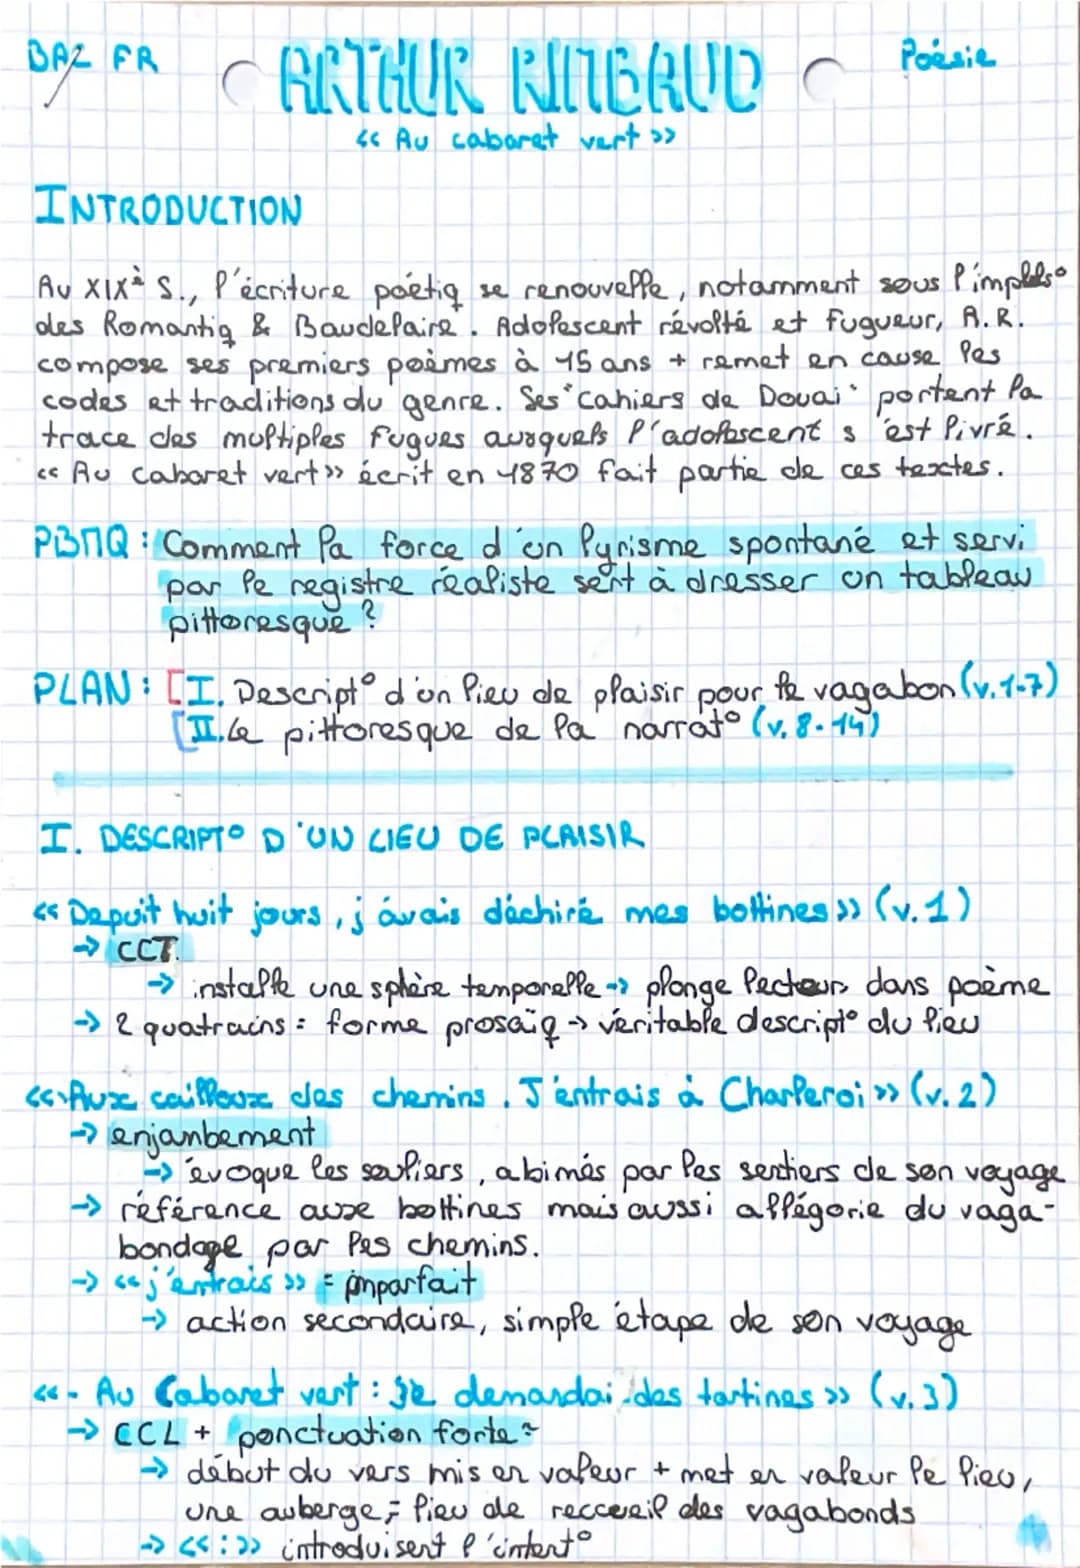 BAC FR
ARTHUR RIMBAUD
Poésie
<< Au cabaret vert >>
INTRODUCTION
Au XIXè S., l'écriture poétiq se renouvelle, notamment sous l'impuls°
des Romantiq & Baudelaire. Adolescent révolté et fugueur, A.R.
compose ses premiers poèmes à 15 ans + remet en cause les
codes et traditions du genre. Ses "Cahiers de Douai" portent la
trace des multiples fugues auxquels l'adolescent s'est livré.
<< Au cabaret vert >> écrit en 1870 fait partie de ces textes.
PBMQ : Comment la force d'un lyrisme spontané et servi
par le registre réaliste sert à dresser un tableau
pittoresque ?
PLAN : [I. Descript° d'un lieu de plaisir pour le vagabon (v.1-7)
[II. Le pittoresque de la narrat° (v. 8-14)
I. DESCRIPT° D'UN LIEU DE PLAISIR
<< Depuit huit jours, j'avais déchiré mes bottines >> (v.1)
→ CCT.
→ installe une sphère temporelle → plonge lecteur dans poème
→ 2 quatrains = forme prosaïq → véritable descript° du lieu
<< Aux cailloux des chemins. J'entrais à Charleroi >> (v.2)
→ enjambement
→ évoque les souliers, abimés par les sentiers de son voyage
→ référence aux bottines mais aussi allégorie du vaga-
bondage par les chemins.
→ << j'entrais >> = imparfait
→ action secondaire, simple étape de son voyage
<< - Au Cabaret vert : je demandai des tartines >> (v.3)
→ CCL + ponctuation forte =
→ début du vers mis en valeur + met en valeur le lieu,
une auberge, = lieu de reccueil des vagabonds
→ << : >> introduisent l'intent°